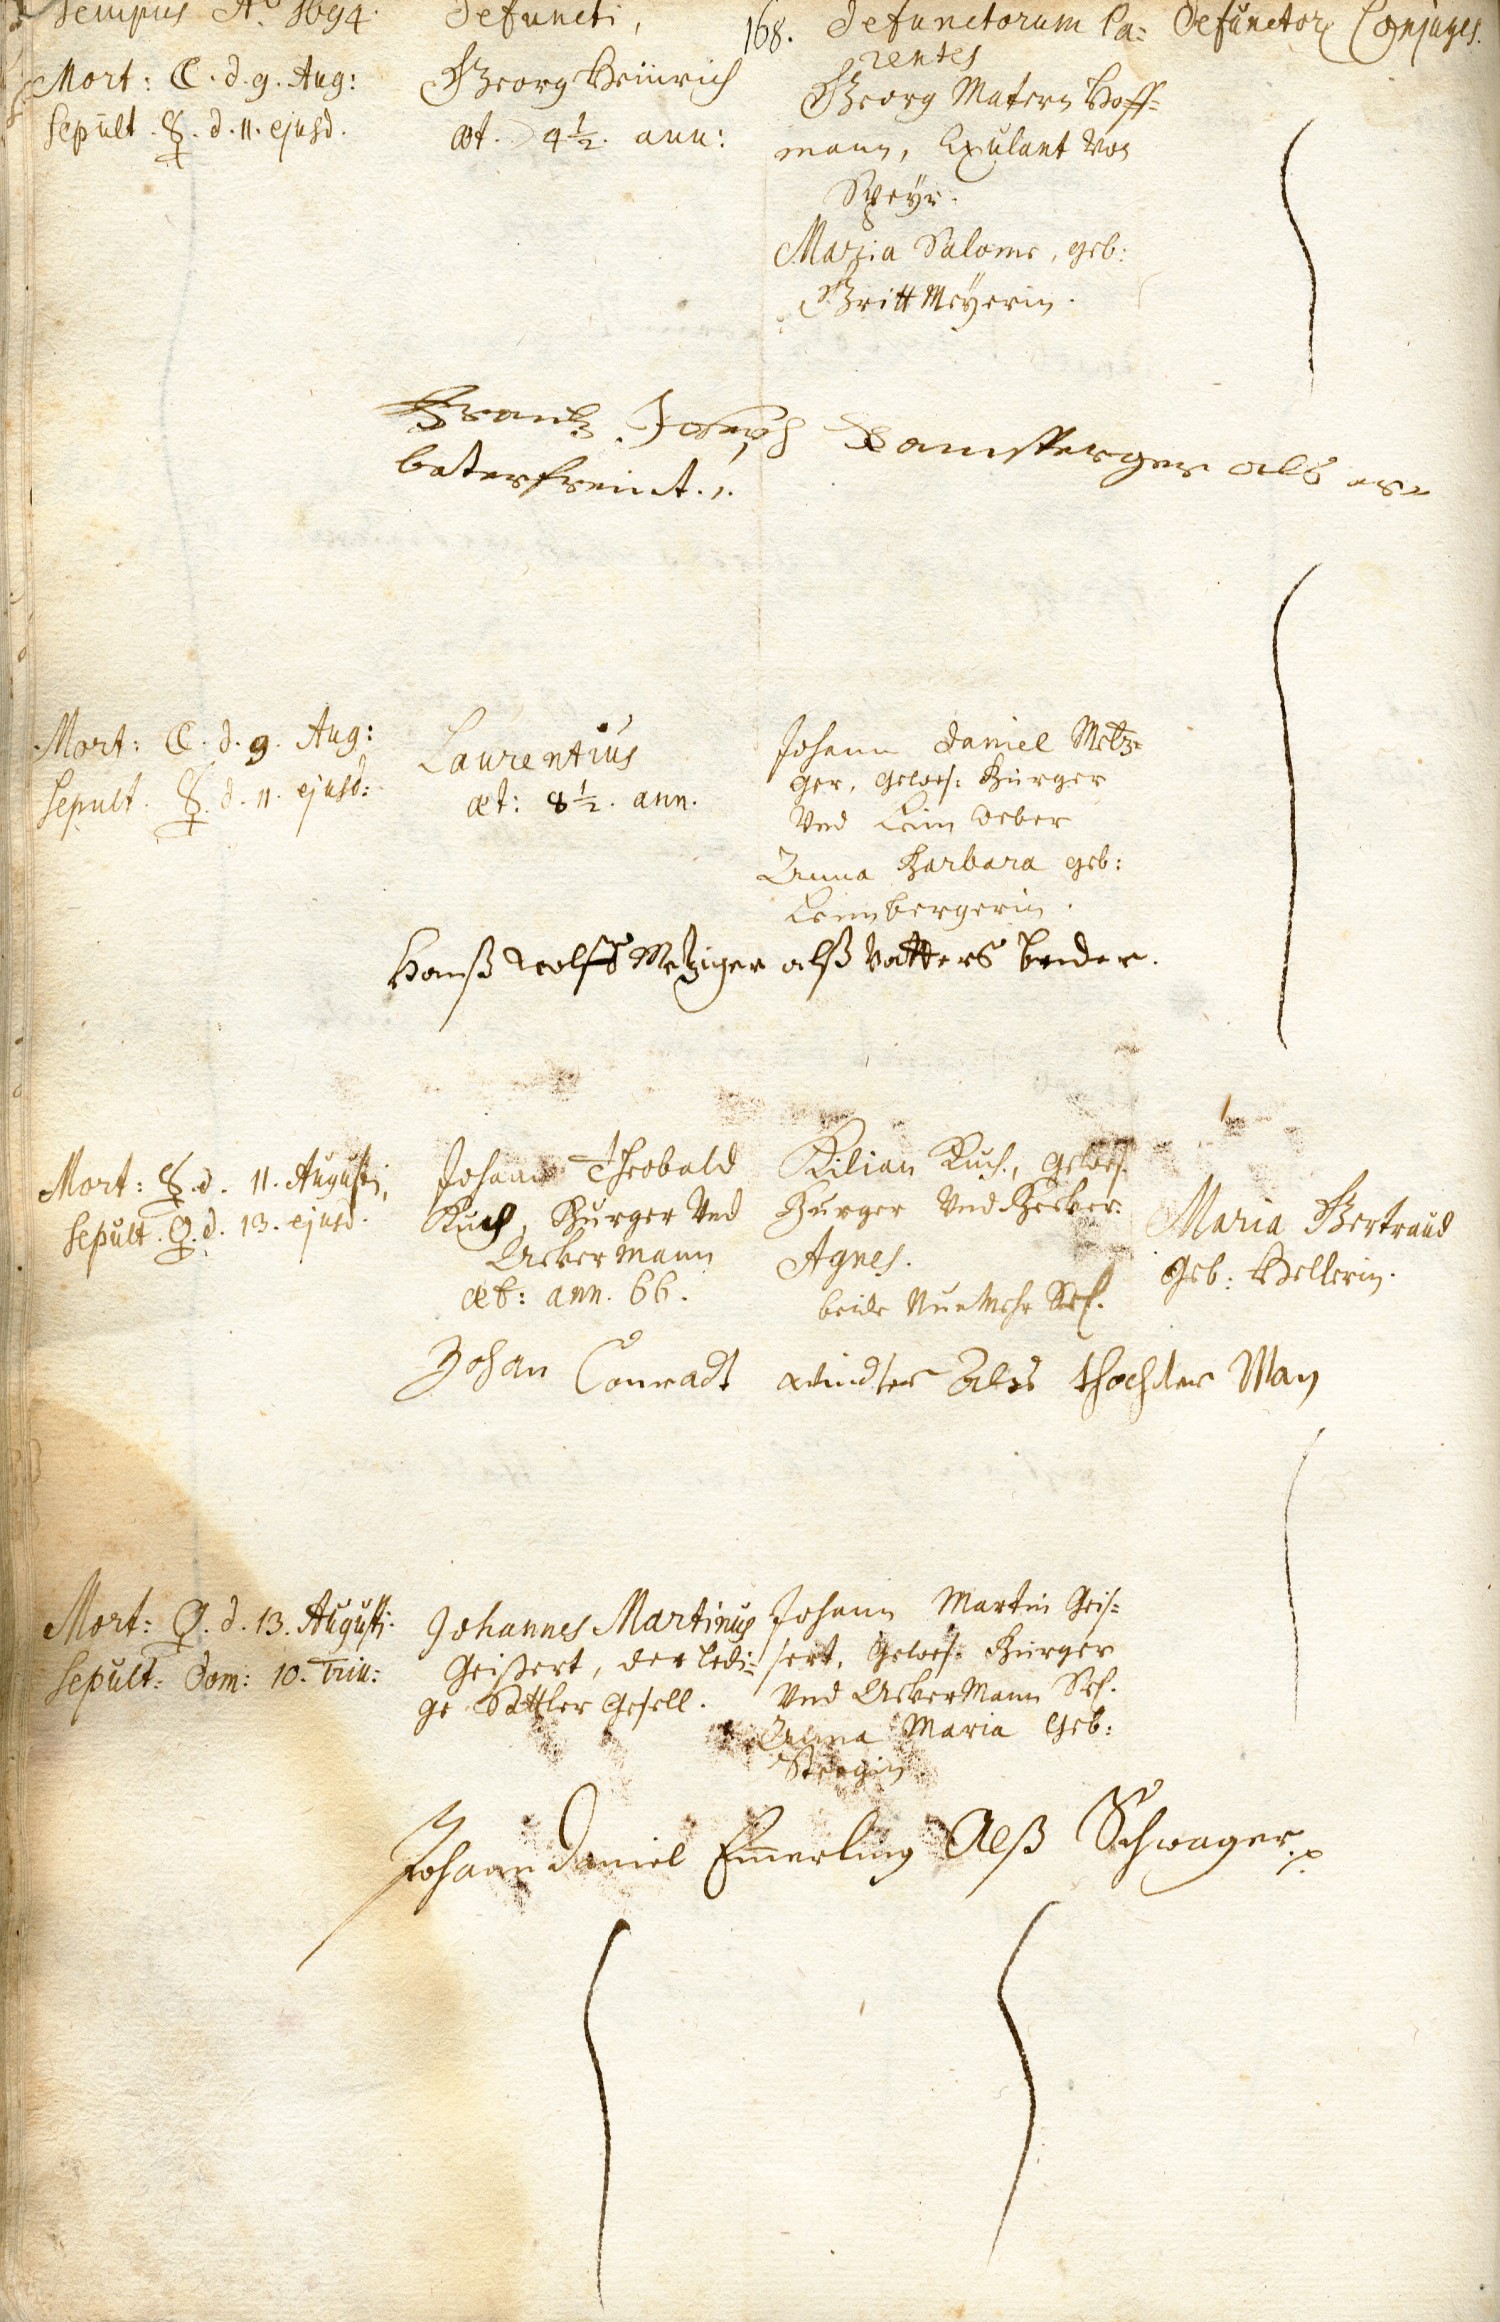 Tempus Aº 1694.
Defuncti,
168.
Defunctorum Pa=
rentes
Defunctorꝝ Conjuges.
Mort: ☾. d. 9. Aug:
Sepult. ☿. d. 11. ejusd.
Georg Heinrich
æt. 4 ½. ann:
Georg Matern Hoff=
mann, Exulant von
Speÿr.
Maria Salome, geb:
Britt Meÿerin.
Frantz Joseph Ramsperger alß er=
betersreint.
Mort: ☾. d. 9. Aug:
Sepult. ☿. d. 11. ejusd:
Laurentius
æt: 8 ½. ann.
Johann Daniel Metz=
ger, gewes: Burger
Vnd Leinweber
Anna Barbara geb:
Leimbergerin.
Hanß Wolff Metziger alß vatters bruder.
Mort: ☿. d. 11. Augusti,
Sepult. ♀. d. 13. ejusd.
Johann Theobald
Ruch, Burger Vnd
Ackermann
æt: ann. 66.
Kilian Ruch, gewes.
Burger Vnd Becker.
Agnes.
beide Nunmehr Seel.
Maria Gertraud
Geb: Hellerin.
Johan Conradt windter Alss thochder Man
Mort: ♀. d. 13. Augusti.
Sepult: Dom: 10. Trin:
Johannes Martinus
Geißert, der ledi=
ge Sattler Gesell.
Johann Martin Geis=
sert, gewes: Burger
Vnd AckerMann Seel.
Anna Maria Geb:
Johann Daniel Emerling Alß Schwager.